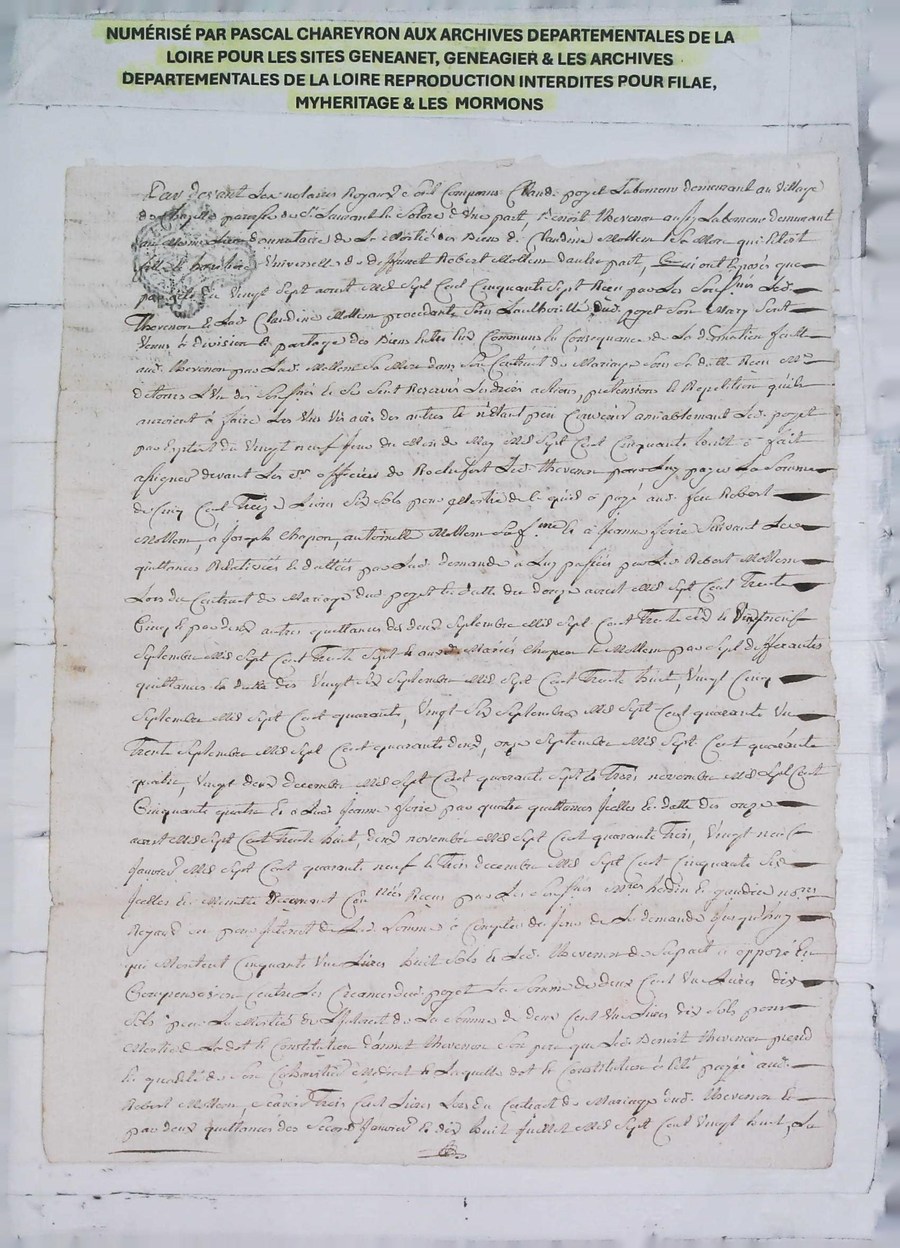 NUMÉRISÉ PAR PASCAL CHAREYRON AUX ARCHIVES DEPARTEMENTALES DE LA
LOIRE POUR LES SITES GENEANET, GENEAGIER & LES ARCHIVES
DEPARTEMENTALES DE LA LOIRE REPRODUCTION INTERDITES POUR FILAE,
MYHERITAGE & LES MORMONS
Par devant Les notaires Royaux sont Comparus Claude poyet Laboureur demeurant au Village
de parroisse de St Laurant d'une part, Benoit thevenon aussy Laboureur demeurant
donnataire de La Moitié des Biens de Claudine Mollem Sa Mere qui Estoit
Universelle de deffunct Robert Mollem d'autre part, Lesquels ont Exposés que
par du Vingt Sept aoust Mil Sept Cent Cinquante Sept Receu par Les Soussignés
Thevenon & Claudine Mollem procedante Sous L'authorité dud. poyet Son Mary Sont
Venus à division & partage des Biens Entre Eux Communs En Consequance de La donnation faitte
aud. thevenon par Lad. Mollem Sa Mere dans Son Contract de Mariage Sous Sa datte Receu
& Se Sont Reservés Leurs actions, pretensions & Repetition qu'ils
auroient à faire Les Uns Vis avis des autres & n'etant peu Convenir amiablement Led. poyet
par Exploit du Vingt neuf du Mois de May Mil Sept Cent Cinquante huit a fait
assigner devant Les officiers de Rochefort Led. thevenon pour Luy payer La Somme
de Cinq Cent Treize Livres Six Sols pour Moitié de Ce qu'il a payé aud. feu Robert
Mollem, à Joseph Chapon, antoinette Mollem Sa f.me & à Jeanne Serie Suivant Les
quittances & dattées par Lad. demande a Luy passées par Led. Robert Mollem
Lors du Contract de Mariage dud. poyet En datte du douze aoust Mil Sept Cent Trente
Cinq & par deux autres quittances des deux Septembre Mil Sept Cent Trente Six & Vingt neuf
Septembre Mil Sept Cent Trente Sept & aux Mariés Chapon & Mollem par Sept differantes
quittances En datte des Vingt Six Septembre Mil Sept Cent Trente huit, Vingt Cinq
Septembre Mil Sept Cent quarante, Vingt Six Septembre Mil Sept Cent quarante Un
Trente Septembre Mil Sept Cent quarante deux, onze Septembre Mil Sept Cent quarante
quatre, Vingt deux decembre Mil Sept Cent quarante Sept & Trois novembre Mil Sept Cent
Cinquante quatre & a Lad. Jeanne Serie par quatre quittances Icelles En datte des onze
aoust Mil Sept Cent Trente huit, deux novembre Mil Sept Cent quarante Trois, Vingt neuf
Janvier Mil Sept Cent quarante neuf & Trois decembre Mil Sept Cent Cinquante Six
Icelles En Minutte Receus par Les Soussignés & gaudin no.res
Royaux & pour Interest de Lad. Somme à Compter du Jour de La demande Jusqu'à
qui Montent Cinquante Une Livres huit Sols & Led. thevenon de Sa part a opposé En
Compensation Contre Les Creances dud. poyet La Somme de deux Cent Une Livres dix
Sols pour La Moitié de L'Interest de La Somme de deux Cent Une Livres dix Sols pour
Moitié de La dot & Constitution d'annet thevenon Son pere que Led. Benoit thevenon prend
En qualité de Son & Laquelle dot & Constitution a Eté payée aud.
Robert Mollem, Scavoir Trois Cent Livres Lors du Contract de Mariage dud. thevenon &
par deux quittances des Second Janvier & dix huit Juillet Mil Sept Cent Vingt huit, La